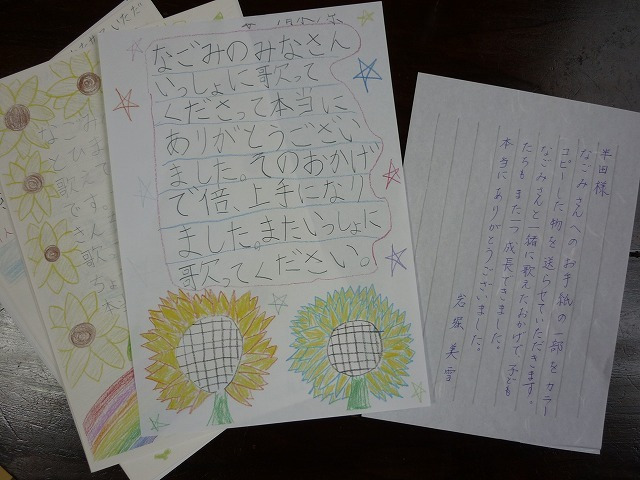 なごみのみなさん
いっしょに歌って
くださって本当に
ありがとうござい
ました。そのおかげ
で倍、上手になり
ました。またいっしょに
歌ってください。
半田様
なごみさんへのお手紙の一部をカラー
コピーした物を送らせていただきます。
なごみさんと一緒に歌えたおかげで、子ども
たちもまた一つ成長できました。
本当にありがとうございました。
岩堀 美雪